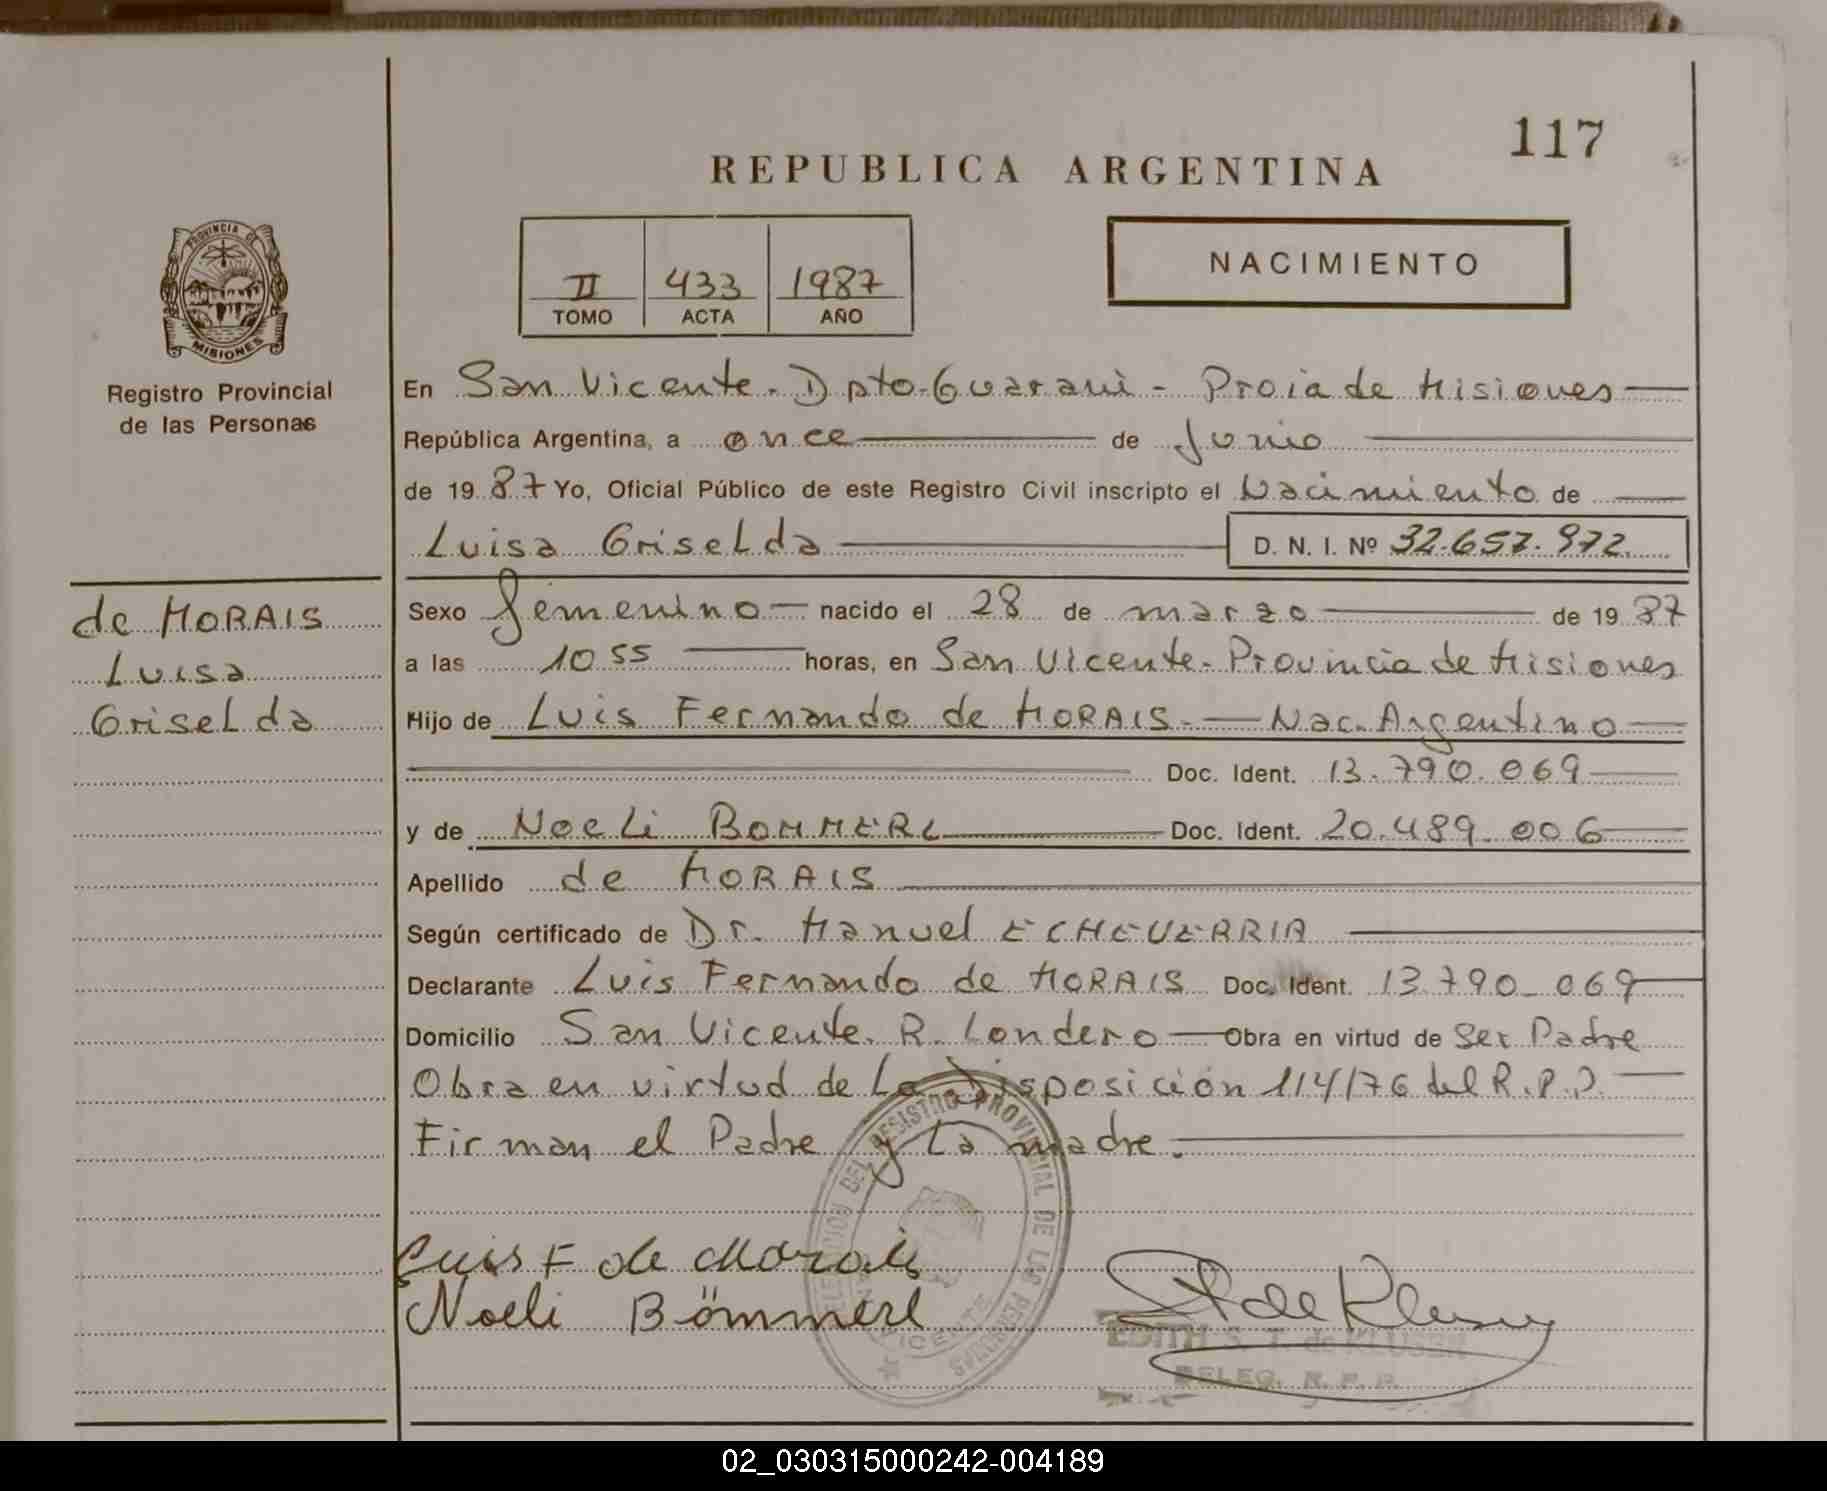 117
REPUBLICA ARGENTINA
PROVINCIA DE
MISIONES
Registro Provincial
de las Personas
II 433 1987
TOMO ACTA AÑO
NACIMIENTO
En San Vicente - Dpto. Guaraní - Procia de Misiones
República Argentina, a once de Junio
de 19 87 Yo, Oficial Público de este Registro Civil inscripto el Nacimiento de
Luisa Griselda D. N. I. Nº 32.657.972
de MORAIS
Luisa
Griselda
Sexo femenino nacido el 28 de marzo de 19 87
a las 10 55 horas, en San Vicente - Provincia de Misiones
Hijo de Luis Fernando de MORAIS - Nac. Argentino
Doc. Ident. 13.790.069
y de Noeli BOMMERL Doc. Ident. 20.489.006
Apellido de MORAIS
Según certificado de Dr. Manuel ECHEVERRIA
Declarante Luis Fernando de MORAIS Doc. Ident. 13.790.069
Domicilio San Vicente. R. Londero Obra en virtud de Ser Padre
Obra en virtud de La Disposición 114/76 del R.P.P.
Firman el Padre y La madre.
DEL REGISTRO PROVINCIAL DE LAS PERSONAS
VICENTE
Luis F de Morais
Noeli Bömmerl
EDITH S. T. de KLUSEN
DELEG. R. P. P.
02_030315000242-004189